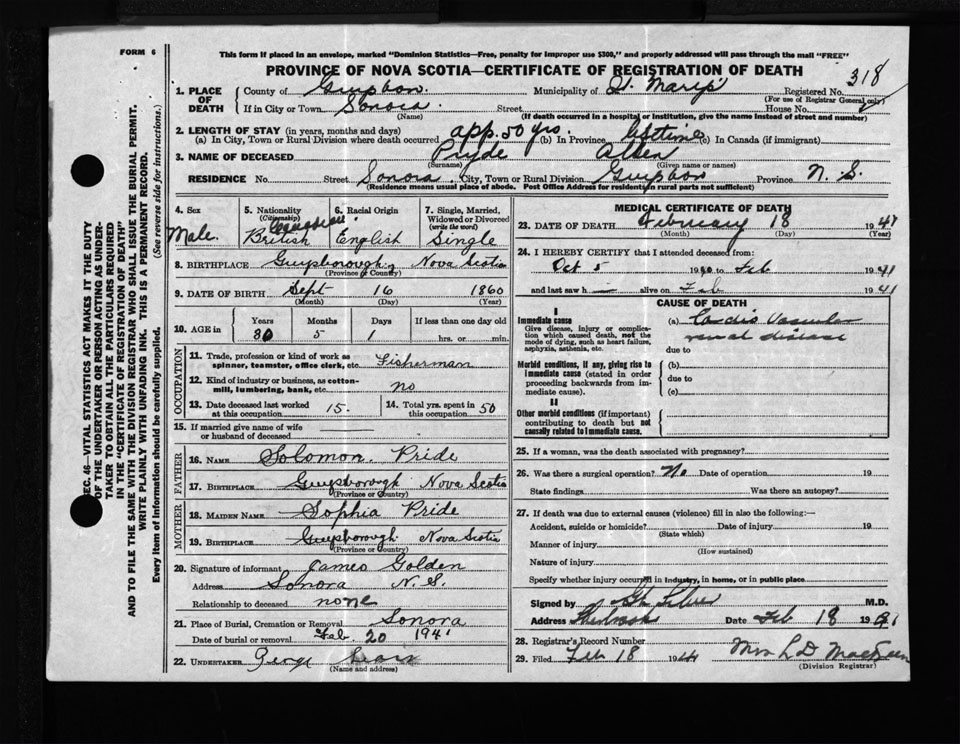 FORM 6
This form if placed in an envelope, marked "Dominion Statistics—Free, penalty for improper use $300," and properly addressed will pass through the mail "FREE"
PROVINCE OF NOVA SCOTIA—CERTIFICATE OF REGISTRATION OF DEATH
318
1. PLACE OF DEATH
County of Municipality of St. Mary's Registered No.
(For use of Registrar General only)
If in City or Town Sonora. Street House No.
(Name) (If death occurred in a hospital or institution, give the name instead of street and number)
2. LENGTH OF STAY (in years, months and days)
(a) In City, Town or Rural Division where death occurred app. 50 yrs. (b) In Province lifetime (c) In Canada (if immigrant)
3. NAME OF DECEASED Pryde Allen
(Surname) (Given name or names)
RESIDENCE No. Street Sonora. City, Town or Rural Division Province N. S.
(Residence means usual place of abode. Post Office Address for residents in rural parts not sufficient)
SEC. 46—VITAL STATISTICS ACT MAKES IT THE DUTY
OF THE UNDERTAKER OR PERSON ACTING AS UNDER-
TAKER TO OBTAIN ALL THE PARTICULARS REQUIRED
IN THE "CERTIFICATE OF REGISTRATION OF DEATH"
AND TO FILE THE SAME WITH THE DIVISION REGISTRAR WHO SHALL ISSUE THE BURIAL PERMIT.
WRITE PLAINLY WITH UNFADING INK. THIS IS A PERMANENT RECORD.
Every item of Information should be carefully supplied. (See reverse side for instructions.)
4. Sex
Male.
5. Nationality
(Citizenship)
Canadian
British
6. Racial Origin
English
7. Single, Married,
Widowed or Divorced
(write the word)
Single
8. BIRTHPLACE Guysborough, Nova Scotia
(Province or Country)
9. DATE OF BIRTH Sept 16 1860
(Month) (Day) (Year)
10. AGE in
Years Months Days If less than one day old
80 5 1 hrs. or min.
OCCUPATION
11. Trade, profession or kind of work as
spinner, teamster, office clerk, etc. Fisherman
12. Kind of industry or business, as cotton-
mill, lumbering, bank, etc. no
13. Date deceased last worked
at this occupation 15.
14. Total yrs. spent in
this occupation 50
15. If married give name of wife
or husband of deceased
FATHER
16. Name Solomon. Pride
17. Birthplace Guysborough Nova Scotia
(Province or Country)
MOTHER
18. Maiden Name Sophia Pride
19. Birthplace Guysborough. Nova Scotia
(Province or Country)
20. Signature of informant James Golden
Address Sonora N. S.
Relationship to deceased none
21. Place of Burial, Cremation or Removal Sonora
Date of burial or removal Feb. 20 1941
22. Undertaker
(Name and address)
MEDICAL CERTIFICATE OF DEATH
23. DATE OF DEATH February 18 1941
(Month) (Day) (Year)
24. I HEREBY CERTIFY that I attended deceased from:
Oct 5 1940 to Feb 1941
and last saw h alive on Feb 1941
CAUSE OF DEATH
I
Immediate cause
Give disease, injury or complica-
tion which caused death, not the
mode of dying, such as heart failure,
asphyxia, asthenia, etc.
(a) Cardio Vascular
renal disease
due to
Morbid conditions, if any, giving rise to
immediate cause (stated in order
proceeding backwards from im-
mediate cause).
(b)
due to
(c)
II
Other morbid conditions (if important)
contributing to death but not
causally related to immediate cause.
25. If a woman, was the death associated with pregnancy?
26. Was there a surgical operation? No Date of operation 19
State findings Was there an autopsy?
27. If death was due to external causes (violence) fill in also the following:—
Accident, suicide or homicide? Date of injury 19
(State which)
Manner of injury
(How sustained)
Nature of injury
Specify whether injury occurred in industry, in home, or in public place
Signed by M.D.
Address Sherbrooke Date Feb 18 1941
28. Registrar's Record Number
29. Filed Feb 18 1941 Mrs L D MacKeen
(Division Registrar)